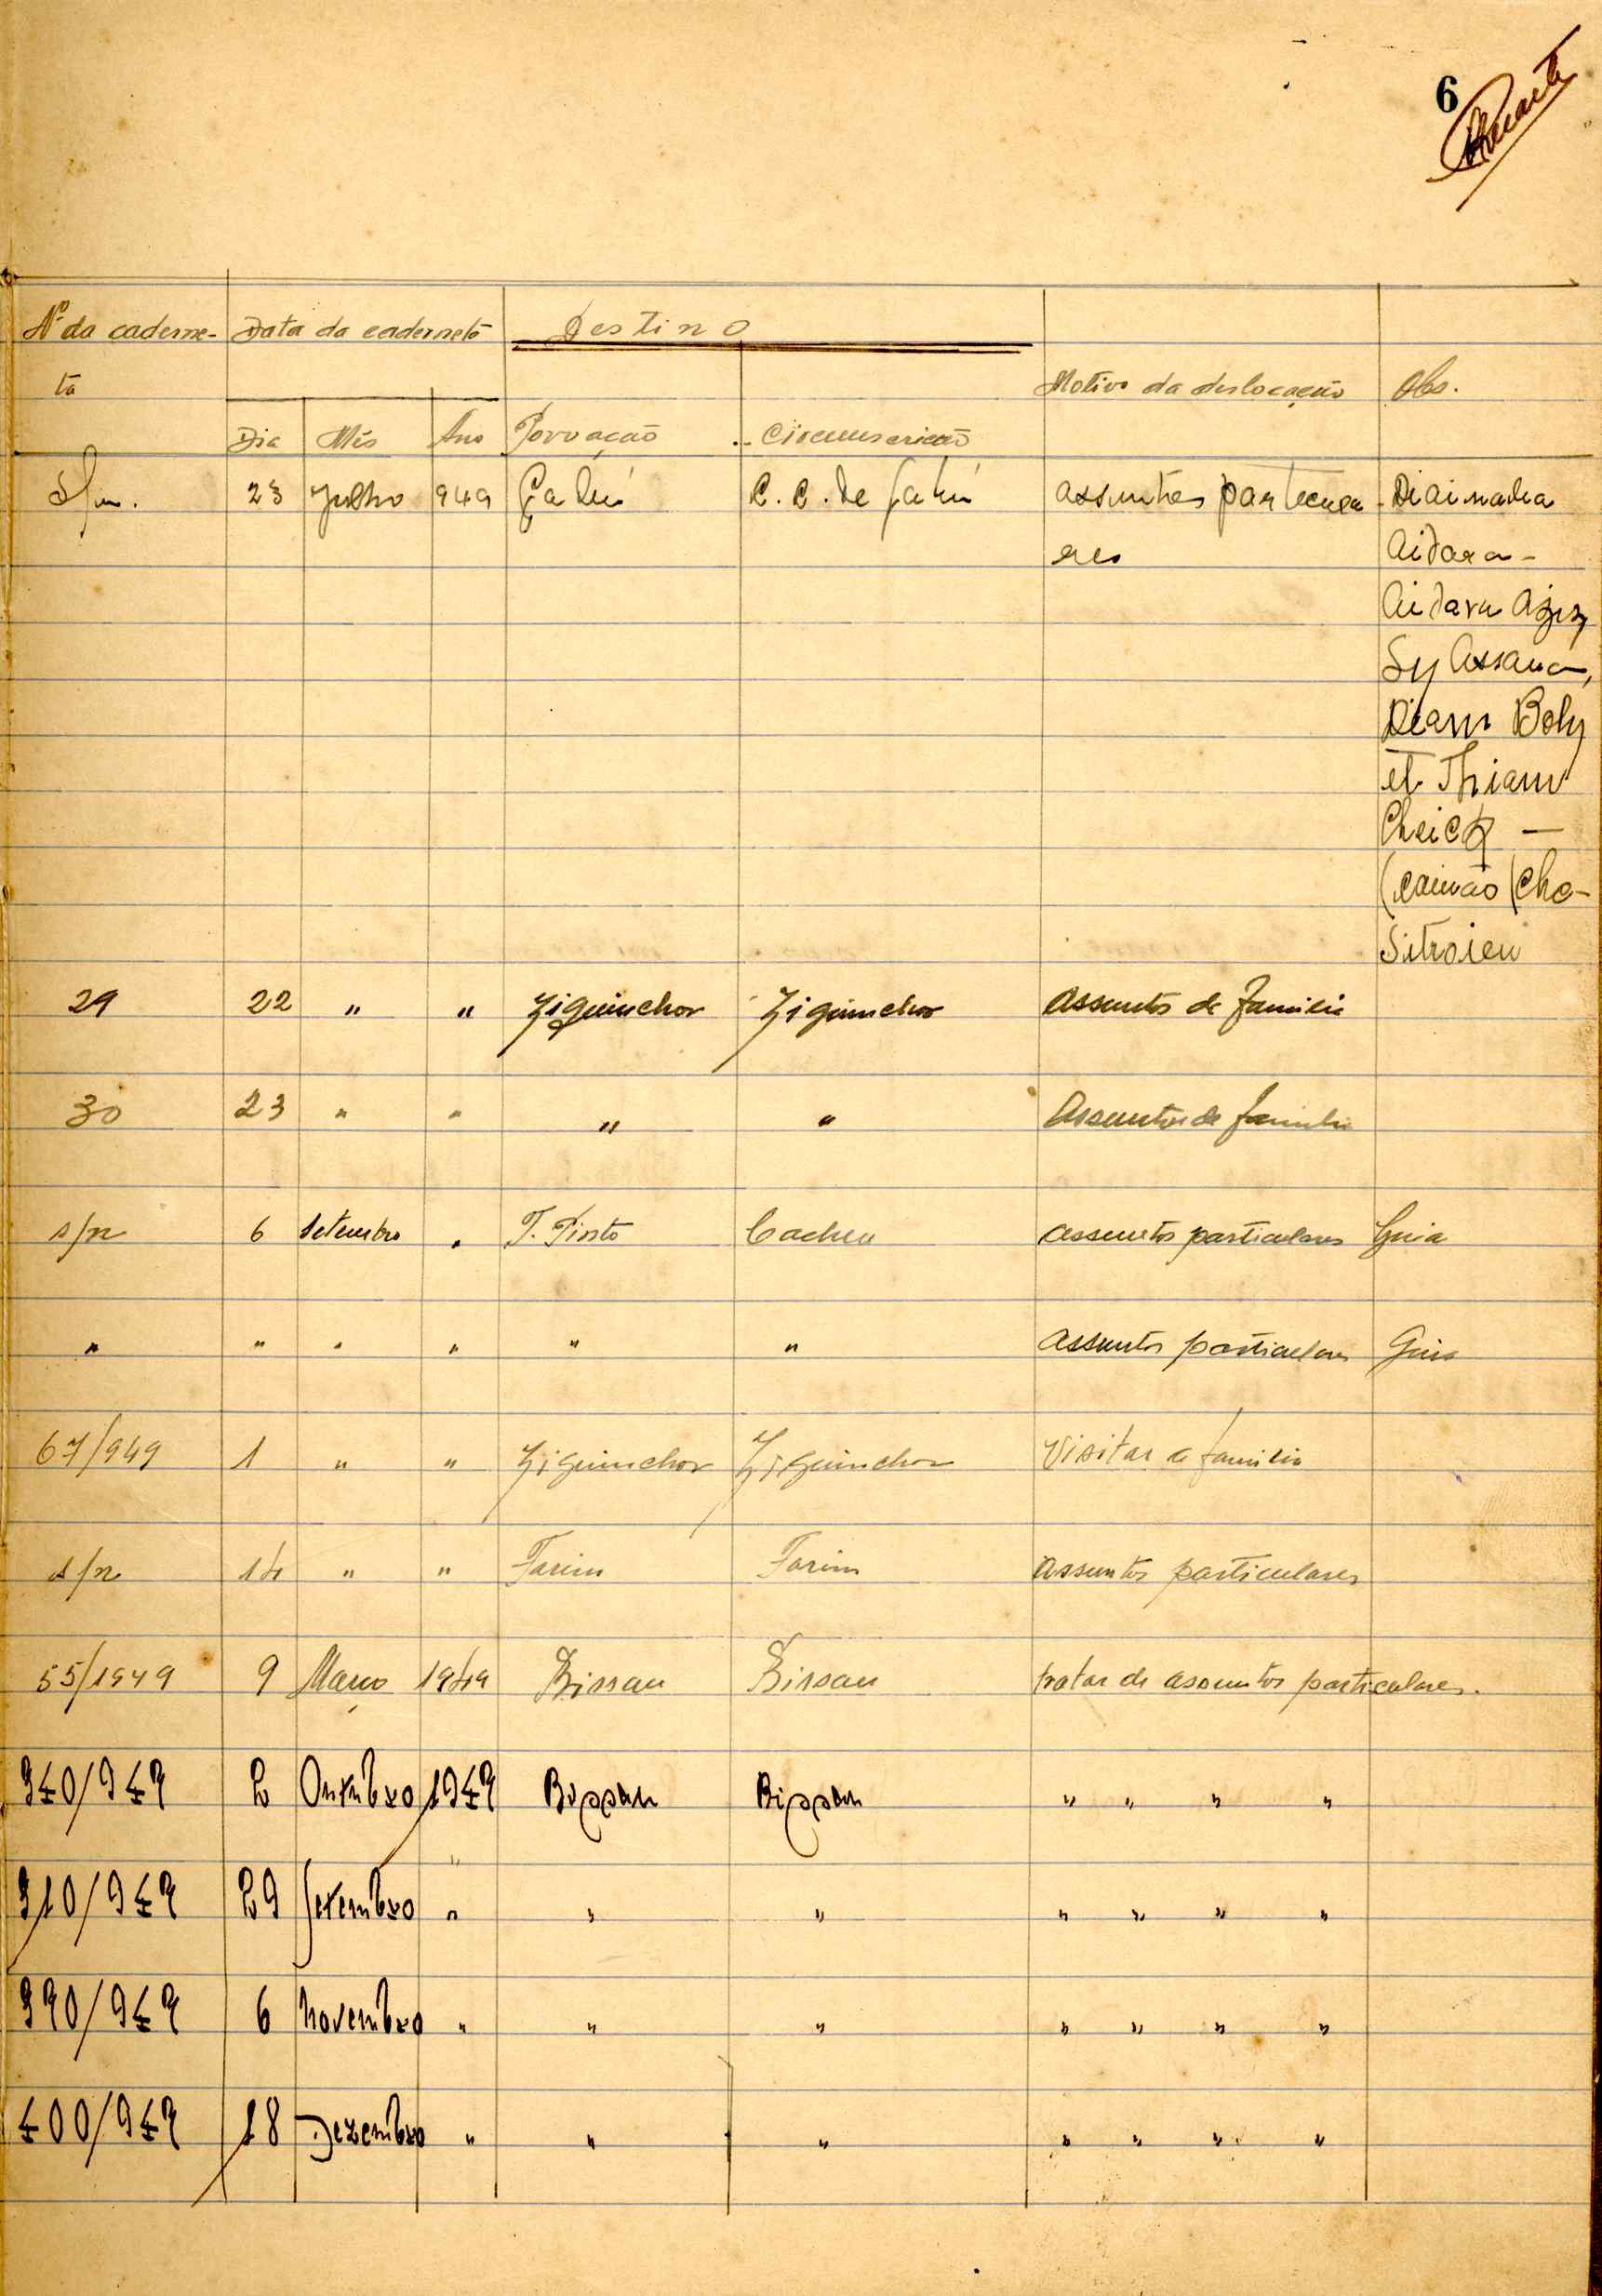 6
Nº da caderne- Data da caderneta Destino
ta Motivo da deslocação Obs.
Dia Mês Ano Povoação Circunscrição
S/n. 23 Julho 949 Gabú C. C. de Gabú assuntos particula- Diaimadia
res Aidara -
Aidara
Sy Assana,
Diam Boly
et Thiam
Cheick —
(camião (Che-
Sitroien
29 22 " " Ziguinchor Ziguinchor Assuntos de familia
30 23 " " " " Assuntos de familia
s/n 6 Setembro " T. Pinto Cacheu assuntos particulares Guia
" " " " " " assuntos particulares Guia
67/949 1 " " Ziguinchor Ziguinchor Visitar a familia
s/n 14 " " Farim Farim assuntos particulares
55/1949 9 Março 1949 Bissau Bissau tratar de assuntos particulares.
340/949 2 Outubro 1949 Bissau Bissau " " " "
"
310/949 29 Setembro " " " " " " "
390/949 6 Novembro " " " " " " "
400/949 18 Dezembro " " " " " " "